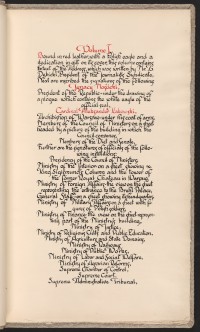 Volume I.
Bound in red leather with a Polish eagle and a
dedication in gilt on its cover, this volume contains
the text of the address, which was written by Mr. St.
Dębicki, President of the Journalists Syndicate.
Next are inscribed the signatures of the following
Ignacy Mościcki
President of the Republic under the drawing of
a plaque which contains the white eagle of the
official seal.
Cardinal Aleksander Kakowski,
Archbishop of Warsaw under his coat of arms.
Members of the Council of Ministers on a page
headed by a picture of the building in which the
Council convenes.
Members of the Diet and Senate.
Further on the signatures of officials of the following
institutions:
Presidency of the Council of Ministers,
Ministry of the Interior on a sheet showing
King Sigismund's Column and the tower of
the former Royal Chateau in Warsaw,
Ministry of Foreign Affairs, the view on the sheet
representing the entrance to the Brühl Palace,
Ministry of Military Affairs on a sheet with
of Polish soldiers,
Ministry of Finance, the view on the sheet representing
part of the Ministry's building,
Ministry of Justice,
Ministry of Religious Cults and Public Education,
Ministry of Agriculture and State Domains,
Ministry of Railways
Ministry of Public Works,
Ministry of Labor and Social Welfare,
Ministry of Agrarian Reforms,
Supreme Chamber of Control,
Supreme Court,
Supreme Administrative Tribunal,